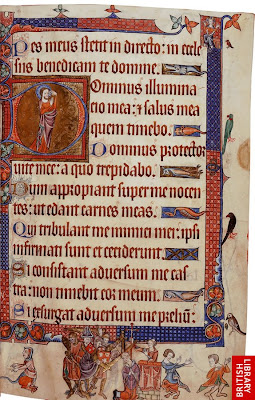 Pes meus stetit in directo: in eccle
siis benedicam te domine.
Dominus illumina
cio mea: ⁊ salus mea
quem timebo.
Dominus protector
uite mee: a quo trepidabo.
Dum appropiant super me nocen
tes: ut edant carnes meas.
Qui tribulant me inimici mei: ipsi
infirmati sunt et ceciderunt.
Si consistant aduersum me cas
tra: non timebit cor meum.
Si exsurgat aduersum me preliū:
BRITISH
LIBRARY